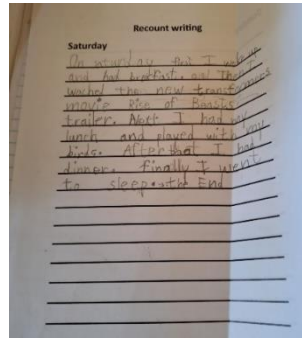 Recount writing
Saturday
On saturday first I woke up
and had breakfast. and Then I
wached the new transformers
movie Rise of Beasts
trailer. Next I had my
lunch and played with my
birds. After that I had
dinner. finally I went
to sleep. the End